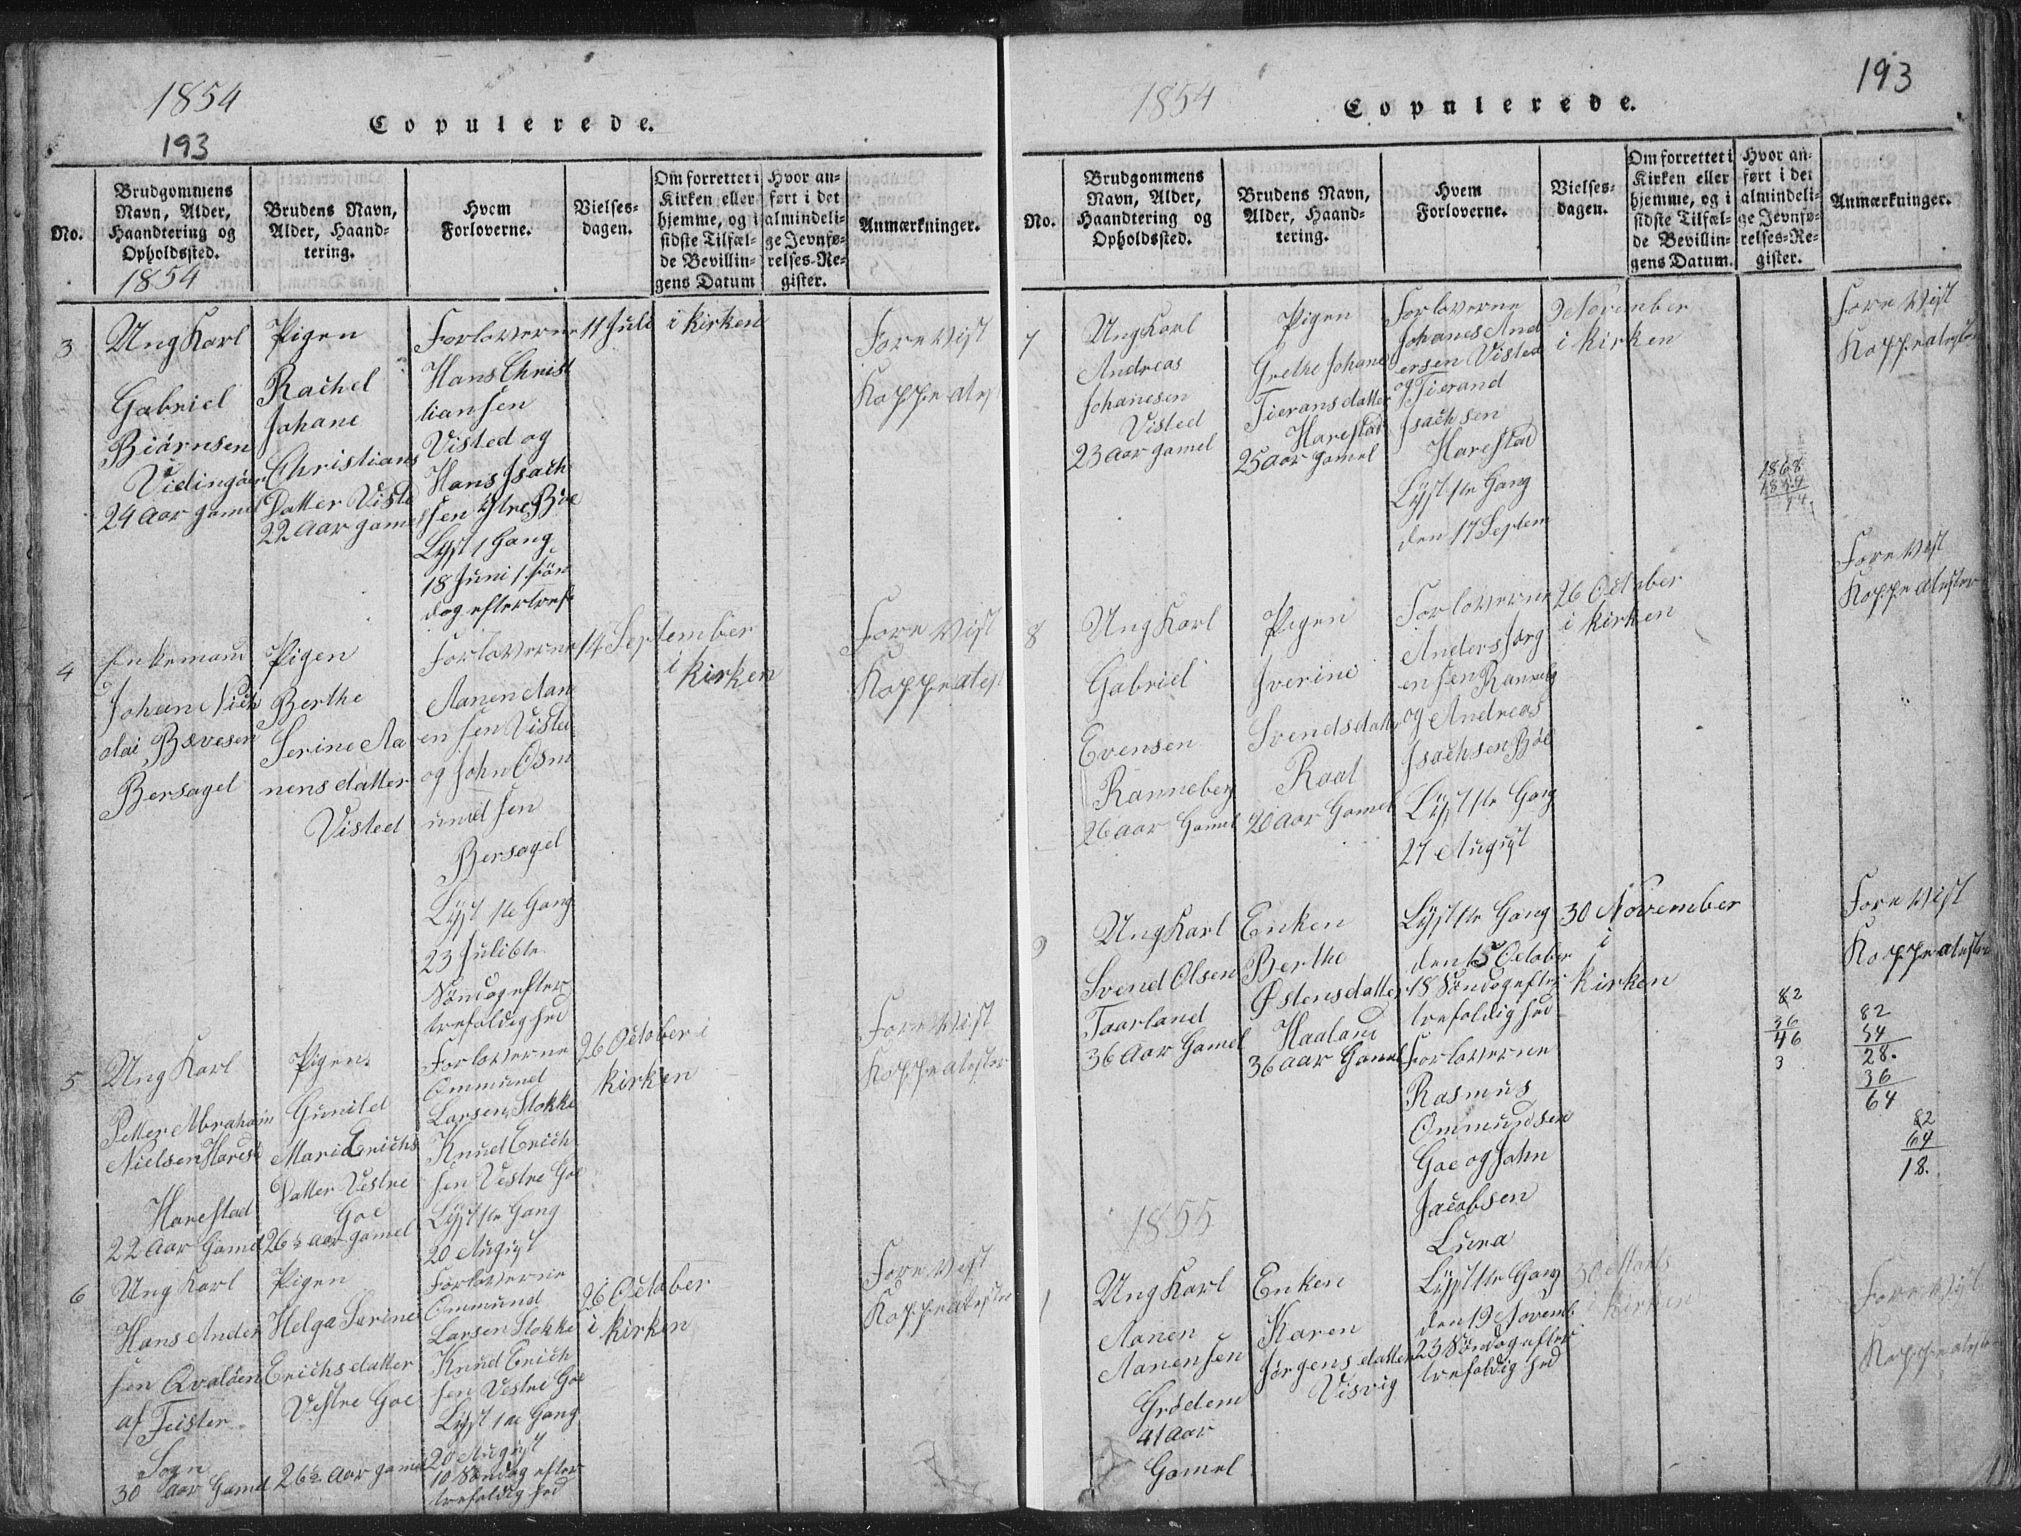 1854
Copulerede.
193
No.
Brudgommens
Navn, Alder,
Haandtering og
Opholdssted.
Brudens Navn,
Alder, Haand-
tering.
Hvem
Forloverne.
Vielses-
dagen.
Om forrettet i
Kirken eller
hjemme, og i
sidste Tilfæl-
de Bevillin-
gens Datum
Hvor an-
ført i det
almindeli-
ge Jevnfø-
relses-Re-
gister.
Anmærkninger.
1854
3
Ung Karl
Gabriel
Biörnsen
Vidingöen
24 Aar gamel
Pigen
Rachel
Johane
Christians
Datter Visted
22 Aar gamel
Forloverne
Hans Christ
tiansen
Visted og
Hans Isach
sen Ytre Böe
Lyst 1 Gang
18 Juni 1 Sön
dag efter tref
11 Juli
i kirken
Fore Vist
Koppe atest
4
Enkemand
Johan Nick
olai
Bersagel
Pigen
Berthe
Serine Aa
nensdatter
Visted
Forloverne
Aanen Aan
ensen Visted
og John Osm
undsen
Bersagel
Lyst 1te Gang
23 Juli 6te
Söndag efter
trefoldighed
14 September
i kirken
Fore Vist
Koppe atest
5
Ung Karl
Petter Abraham
Nielsen
Harestad
22 Aar Gamel
Pigen
Gunild
Marie Erichs
Datter Vestre
Goe
26½ Aar gamel
Forloverne
Ommund
Larsen Stokke
Knud Erich
sen Vestre Goe
Lyst 1te Gang
20 August
26 October i
kirken
Fore Vist
Koppe atester
6
Ung Karl
Hans Ander
sen Qvalöen
af
Sogn
30 Aar Gamel
Pigen
Helga Serine
Erichsdatter
Vestre Goe
26½ Aar gamel
Forloverne
Ommund
Larsen Stokke
Knud Erich
sen Vestre Goe
Lyst 1te Gang
20 August
10 Söndag efter
trefoldighed
26 October
i kirken
Fore Vist
Koppe atester
1854
Copulerede.
193
No.
Brudgommens
Navn, Alder,
Haandtering og
Opholdssted.
Brudens Navn,
Alder, Haand-
tering.
Hvem
Forloverne.
Vielses-
dagen.
Om forrettet i
Kirken eller
hjemme, og i
sidste Tilfæl-
de Bevillin-
gens Datum.
Hvor an-
ført i det
almindeli-
ge Jevnfø-
relses-Re-
gister.
Anmærkninger.
7
Ung Karl
Andreas
Johanesen
Visted
23 Aar gamel
Pigen
Grethe Johane
Tieransdatter
Harestad
25 Aar gamel
Forloverne
Johanes And
ersen Visted
og Tierand
Isachsen
Harestad
Lyst 1te Gang
den 17 Septem
9 November
i kirken
Fore Vist
Koppe atester
8
Ung Karl
Gabriel
Evensen
Ranneberg
26 Aar Gamel
Pigen
Iverine
Svendsdatter
Raal
20 Aar Gamel
Forloverne
Anders Jörg
ensen Ranneberg
og Andreas
Isachsen Böe
Lyst 1te Gang
27 August
26 October
i kirken
Fore Vist
Koppe atester
9
Ung Karl
Svend Olsen
Taarland
36 Aar Gamel
Enken
Berthe
Østensdatter
Haaland
36 Aar Gamel
Lyst 1te Gang
den 15 October
18 Söndag efter
trefoldighed
Forloverne
Rasmus
Ommundsen
Goe og John
Jacobsen
Lura
30 November
i
kirken
Fore Vist
Koppe atester
82
36
46
3
82
54
28.
36
64
82
64
18.
1855
1
Ung Karl
Aanen
Aanensen
Grödem
41 Aar
Gamel
Enken
Karen
Jörgensdatter
Visvig
Lyst 1te Gang
den 19 Novemb
23 Söndag efter
trefoldighed
30 Marts
i kirken
Fore Vist
Koppe atester